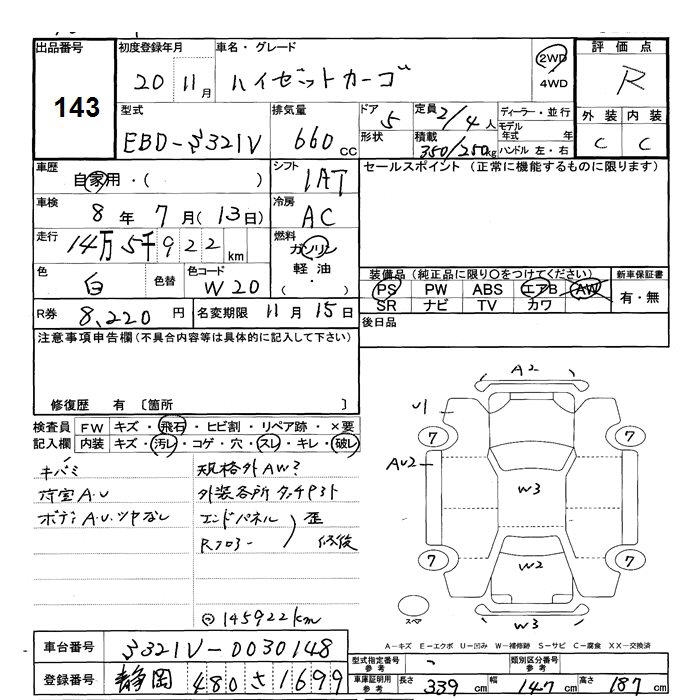 出品番号
143
初度登録年月
20 11月
車名・グレード
ハイゼットカーゴ
2WD
4WD
評価点
R
外装 内装
C C
型式
EBD-S321V
排気量
660 cc
ドア
5
形状
定員
2/4人
積載
350/250kg
ディーラー・並行
モデル年式 年
ハンドル 左・右
車歴
自家用・( )
シフト
IAT
セールスポイント(正常に機能するものに限ります)
車検
8年 7月(13日)
冷房
AC
走行
14万5千922km
燃料
ガソリン
軽油
( ・ )
色
白
色替
色コード
W20
装備品(純正品に限り○をつけてください)
PS PW ABS エアB AW
SR ナビ TV カワ
新車保証書
有・無
R券 8,220円
名変期限 11月15日
後日品
注意事項申告欄(不具合内容等は具体的に記入して下さい)
修復歴 有〔箇所 〕
検査員記入欄
FW キズ・飛石・ヒビ割・リペア跡・×要
内装 キズ・汚レ・コゲ・穴・スレ・キレ・破レ
キバミ
荷室A・U
ボディA.U.ツヤなし
規格外AW?
外装各所タッチペイント
エンドパネル
Rフロアー
歪
修復
145922km
A2
U1
7
7
AU2
W3
7
W2
7
スペア
W3
A-キズ E-エクボ U-凹み W-補修跡 S-サビ C-腐食 XX-交換済
車台番号
S321V-0030148
型式指定番号 参考
-
類別区分番号 参考
登録番号
静岡 480 さ 1699
車庫証明用 参考
長さ 339 cm
幅 147 cm
高さ 187 cm